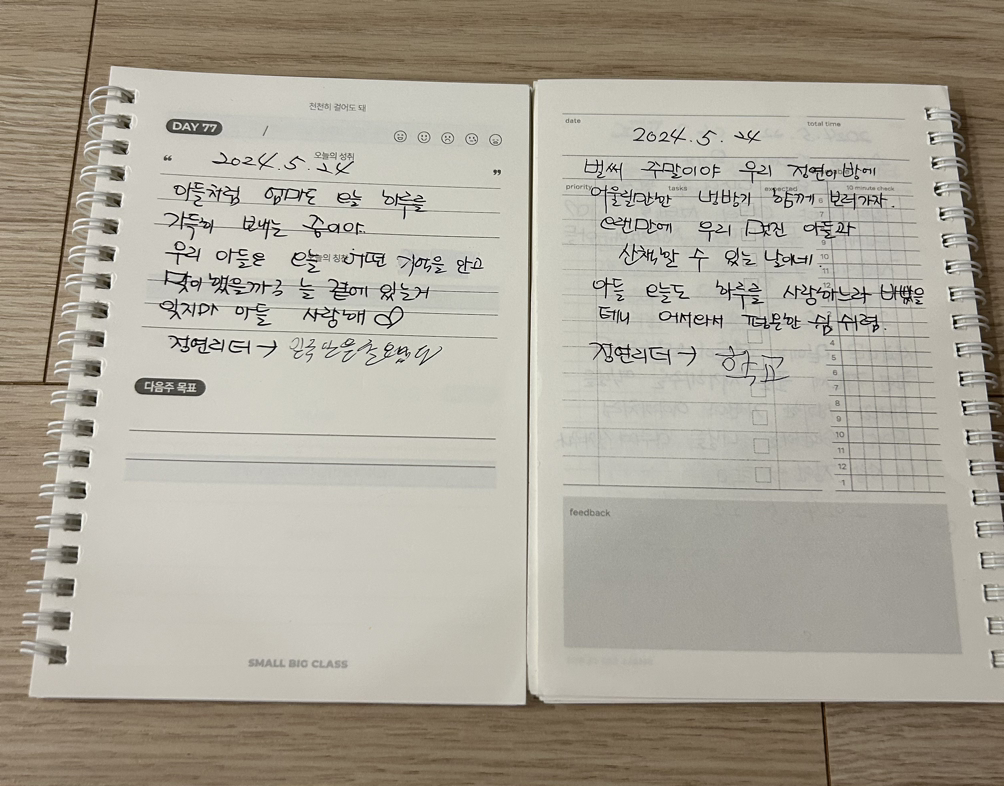 천천히 걸어도 돼
DAY 77
/
오늘의 성취
“ 2024. 5. 24 ”
아들처럼 엄마도 오늘 하루를
가득히 보내는 중이야.
우리 아들은 오늘 어떤 기억을 안고
늘 곁에 있는거
잊지마 아들 사랑해
정연리더 →
다음주 목표
SMALL BIG CLASS
date
total time
2024. 5. 24
벌써 주말이야 우리 정연이방에
priority
tasks
expected
10 minute check
어울릴만한 냄비 함께 보러가자.
오랜만에 우리 멋진 아들과
산책할 수 있는 날이네.
아들 오늘도 하루를 사랑하느라 바빴을
테니 어서와서 평온한 쉼 쉬렴.
정연리더 → 학교
6
7
9
10
11
12
4
5
6
7
8
9
10
11
12
1
feedback